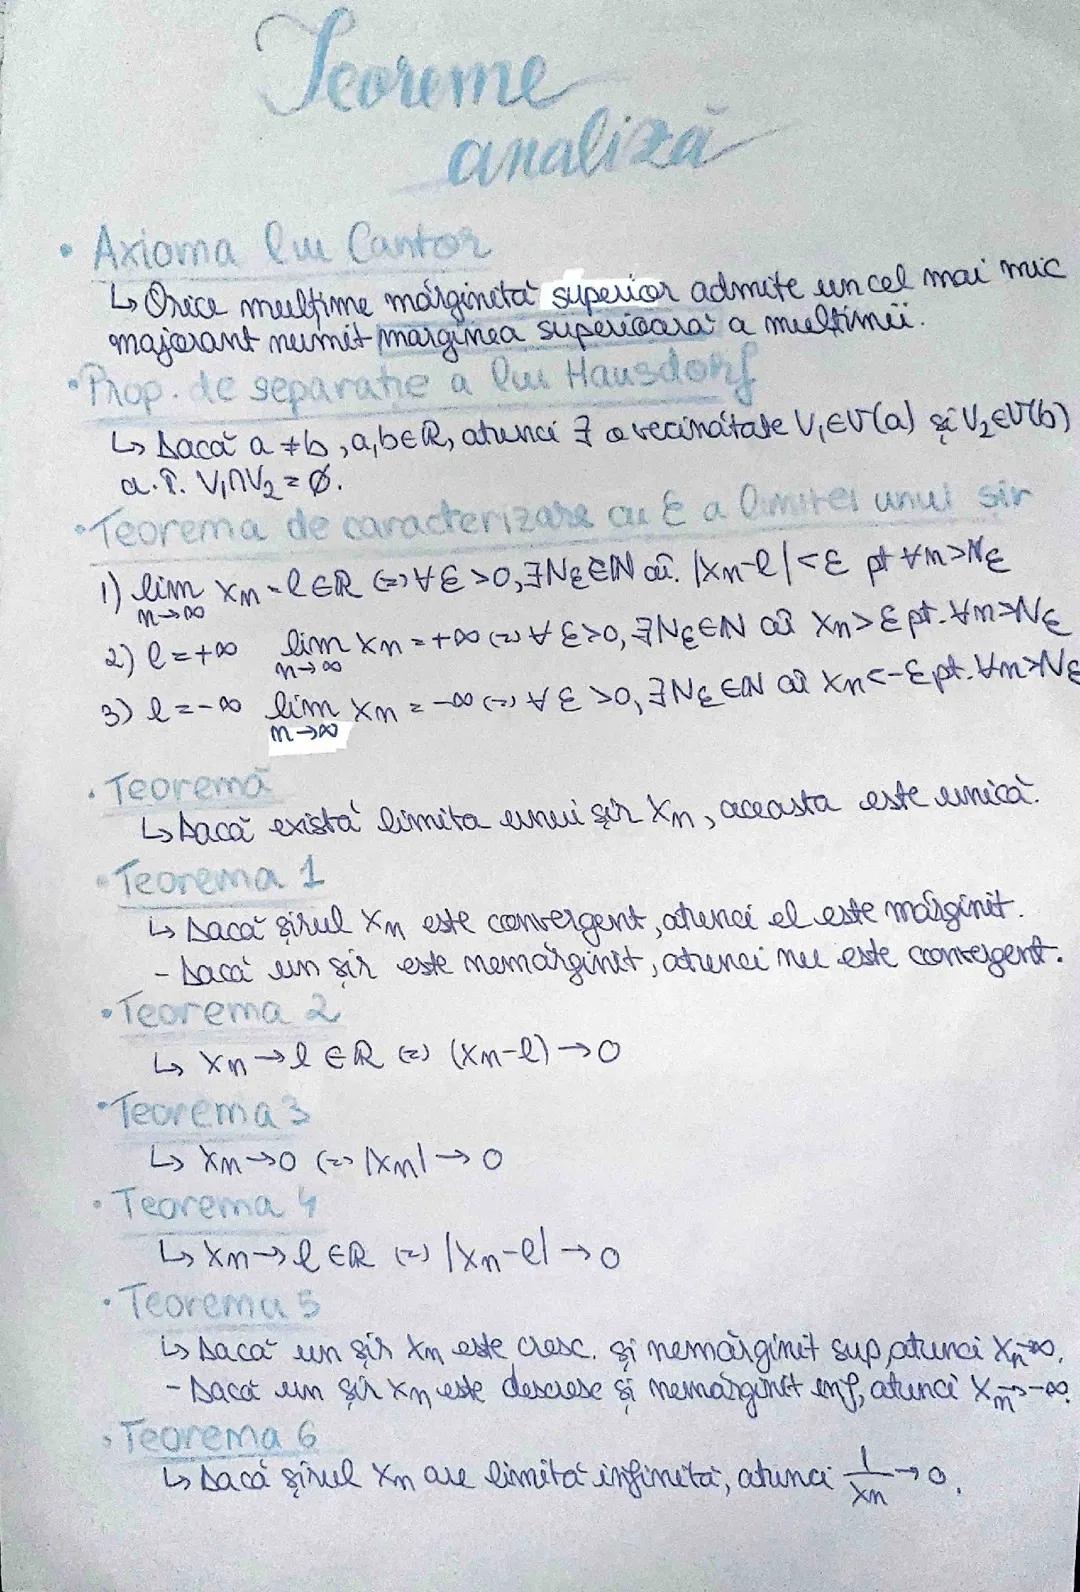 Teoreme
analiză
• Axioma lui Cantor
↳ Orice mulțime mărginită superior admite un cel mai mic
majorant numit marginea superioară a mulțimii.
• Prop. de separație a lui Hausdorf
↳ Dacă a ≠ b, a,b∈ℝ, atunci ∃ o vecinătate V₁∈V(a) și V₂∈V(b)
a.î. V₁∩V₂ = ∅.
• Teorema de caracterizare cu ε a limitei unui șir
1) lim xₙ = l∈ℝ (=) ∀ε>0, ∃Nε∈ℕ aî. |xₙ-l|<ε pt ∀n>Nε
n→∞
2) l=+∞ lim xₙ = +∞ (=) ∀ε>0, ∃Nε∈ℕ aî xₙ>ε pt. ∀n>Nε
n→∞
3) l=-∞ lim xₙ = -∞ (=) ∀ε>0, ∃Nε∈ℕ aî xₙ<-ε pt. ∀n>Nε
n→∞
• Teoremă
↳ Dacă există limita unui șir xₙ, aceasta este unică.
• Teorema 1
↳ Dacă șirul xₙ este convergent, atunci el este mărginit.
- Dacă un șir este nemărginit, atunci nu este convergent.
• Teorema 2
↳ xₙ→l ∈ℝ (=) (xₙ-l)→0
• Teorema 3
↳ xₙ→0 (=) |xₙ|→0
• Teorema 4
↳ xₙ→l ∈ℝ (=) |xₙ-l|→0
• Teorema 5
↳ Dacă un șir xₙ este cresc. și nemărginit sup, atunci xₙ→∞.
- Dacă un șir xₙ este descresc și nemărginit inf, atunci xₙ→-∞.
• Teorema 6
↳ Dacă șirul xₙ are limită infinită, atunci 1/xₙ→0.